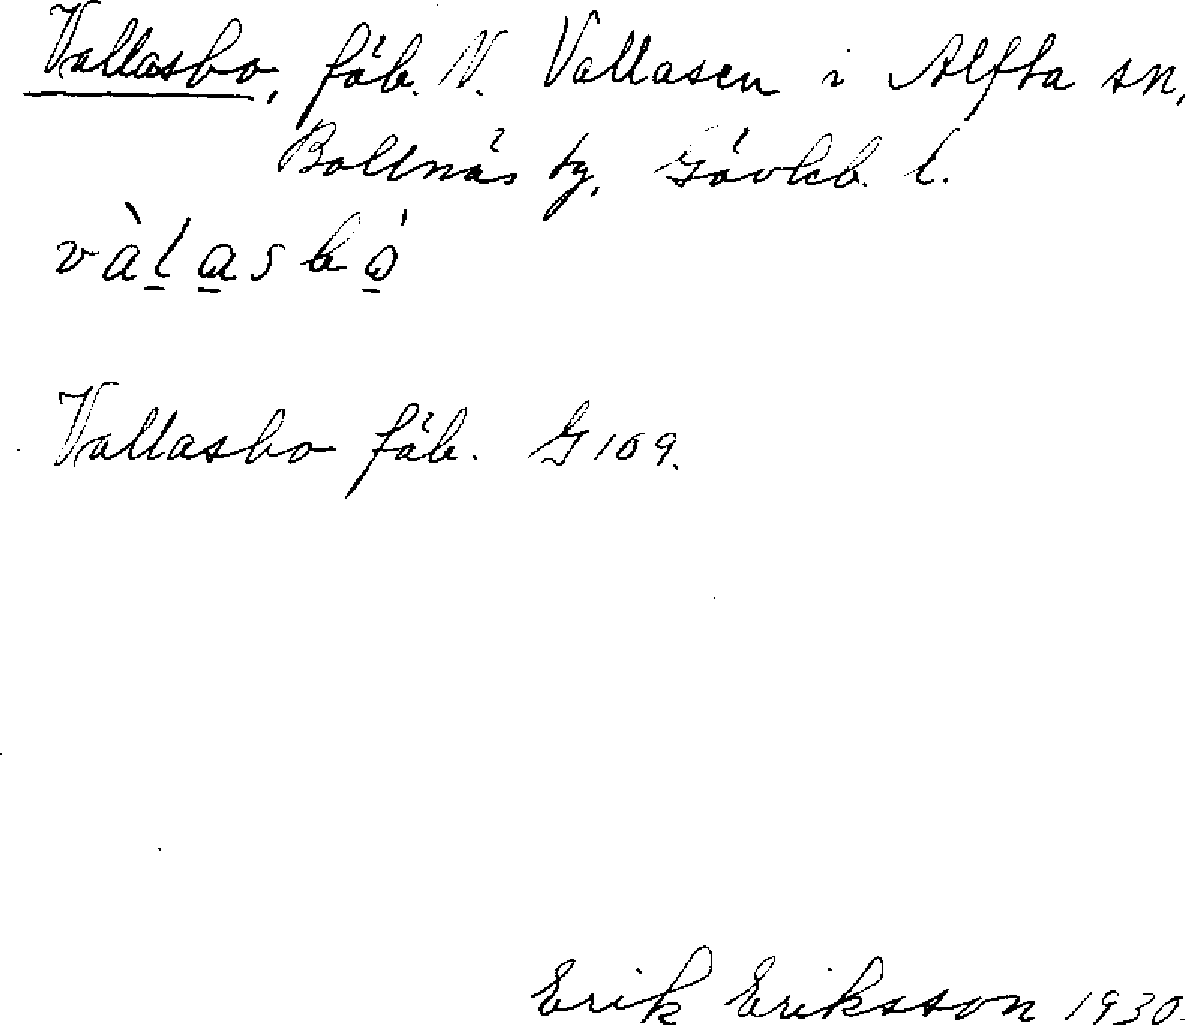 Vallasbo, fäb. N. Vallasen i Alfta sn,
Bollnäs tg, Gävleb. l.
vàl̠a̠sbó̠
Vallasbo fäb. G 109.
Erik Eriksson 1930.